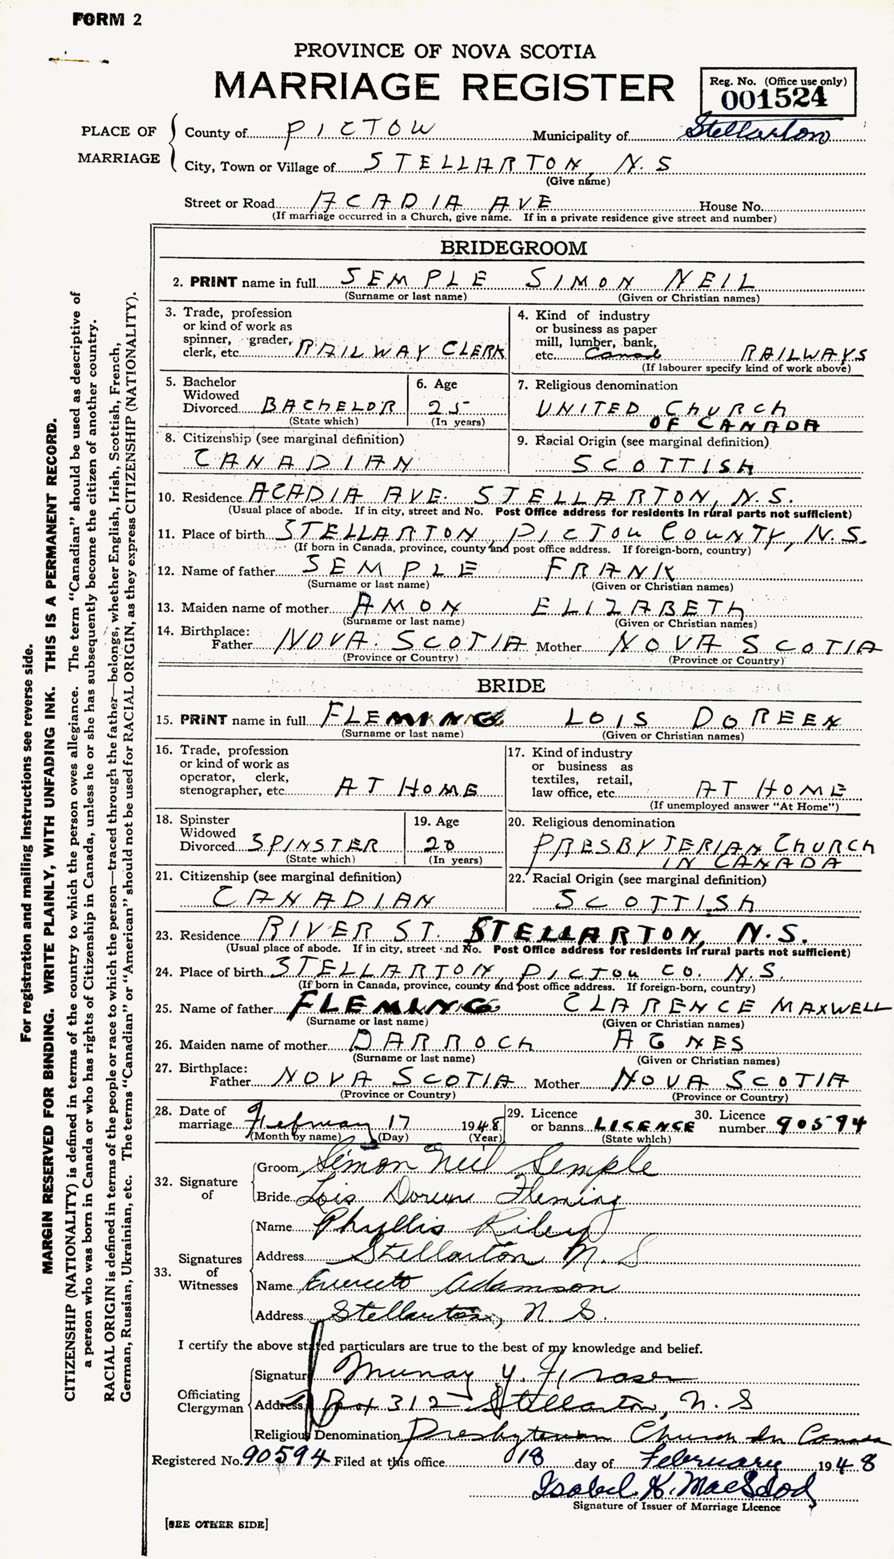 FORM 2
PROVINCE OF NOVA SCOTIA
MARRIAGE REGISTER
Reg. No. (Office use only)
001524
PLACE OF MARRIAGE
County of PICTOW Municipality of Stellarton
City, Town or Village of STELLARTON, N.S
(Give name)
Street or Road ACADIA AVE House No.
(If marriage occurred in a Church, give name. If in a private residence give street and number)
BRIDEGROOM
2. PRINT name in full SEMPLE SIMON NEIL
(Surname or last name) (Given or Christian names)
3. Trade, profession or kind of work as spinner, grader, clerk, etc. RAILWAY CLERK
4. Kind of industry or business as paper mill, lumber, bank, etc. Canad RAILWAYS
(If labourer specify kind of work above)
5. Bachelor Widowed Divorced BACHELOR
(State which)
6. Age 25
(In years)
7. Religious denomination
UNITED CHURCH
OF CANADA
8. Citizenship (see marginal definition)
CANADIAN
9. Racial Origin (see marginal definition)
SCOTTISH
10. Residence ACADIA AVE. STELLARTON, N.S.
(Usual place of abode. If in city, street and No. Post Office address for residents in rural parts not sufficient)
11. Place of birth STELLARTON, PICTOU COUNTY, N.S.
(If born in Canada, province, county and post office address. If foreign-born, country)
12. Name of father SEMPLE FRANK
(Surname or last name) (Given or Christian names)
13. Maiden name of mother AMON ELIZABETH
(Surname or last name) (Given or Christian names)
14. Birthplace:
Father NOVA SCOTIA Mother NOVA SCOTIA
(Province or Country) (Province or Country)
BRIDE
15. PRINT name in full FLEMING LOIS DOREEN
(Surname or last name) (Given or Christian names)
16. Trade, profession or kind of work as operator, clerk, stenographer, etc. AT HOME
17. Kind of industry or business as textiles, retail, law office, etc. AT HOME
(If unemployed answer "At Home")
18. Spinster Widowed Divorced SPINSTER
(State which)
19. Age 20
(In years)
20. Religious denomination
PRESBYTERIAN CHURCH
IN CANADA
21. Citizenship (see marginal definition)
CANADIAN
22. Racial Origin (see marginal definition)
SCOTTISH
23. Residence RIVER ST. STELLARTON, N.S.
(Usual place of abode. If in city, street and No. Post Office address for residents in rural parts not sufficient)
24. Place of birth STELLARTON, PICTOU CO. N.S.
(If born in Canada, province, county and post office address. If foreign-born, country)
25. Name of father FLEMING CLARENCE MAXWELL
(Surname or last name) (Given or Christian names)
26. Maiden name of mother DARROCH AGNES
(Surname or last name) (Given or Christian names)
27. Birthplace:
Father NOVA SCOTIA Mother NOVA SCOTIA
(Province or Country) (Province or Country)
28. Date of marriage February 17 1948
(Month by name) (Day) (Year)
29. Licence or banns LICENCE
(State which)
30. Licence number 90594
32. Signature of
Groom Simon Neil Semple
Bride Lois Doreen Fleming
33. Signatures of Witnesses
Name Phyllis Riley
Address Stellarton N.S
Name Everett Adamson
Address Stellarton, N.S.
I certify the above stated particulars are true to the best of my knowledge and belief.
Officiating Clergyman
Signature Murray Y. Fraser
Address Box 312 Stellarton, N.S
Religious Denomination Presbyterian Church In Canada
Registered No. 90594 Filed at this office 18 day of February 1948
Isobel K. MacLeod
Signature of Issuer of Marriage Licence
[SEE OTHER SIDE]
For registration and mailing instructions see reverse side.
MARGIN RESERVED FOR BINDING. WRITE PLAINLY, WITH UNFADING INK. THIS IS A PERMANENT RECORD.
CITIZENSHIP (NATIONALITY) is defined in terms of the country to which the person owes allegiance. The term "Canadian" should be used as descriptive of
a person who was born in Canada or who has rights of Citizenship in Canada, unless he or she has subsequently become the citizen of another country.
RACIAL ORIGIN is defined in terms of the people or race to which the person—traced through the father—belongs, whether English, Irish, Scottish, French,
German, Russian, Ukrainian, etc. The terms "Canadian" or "American" should not be used for RACIAL ORIGIN, as they express CITIZENSHIP (NATIONALITY).